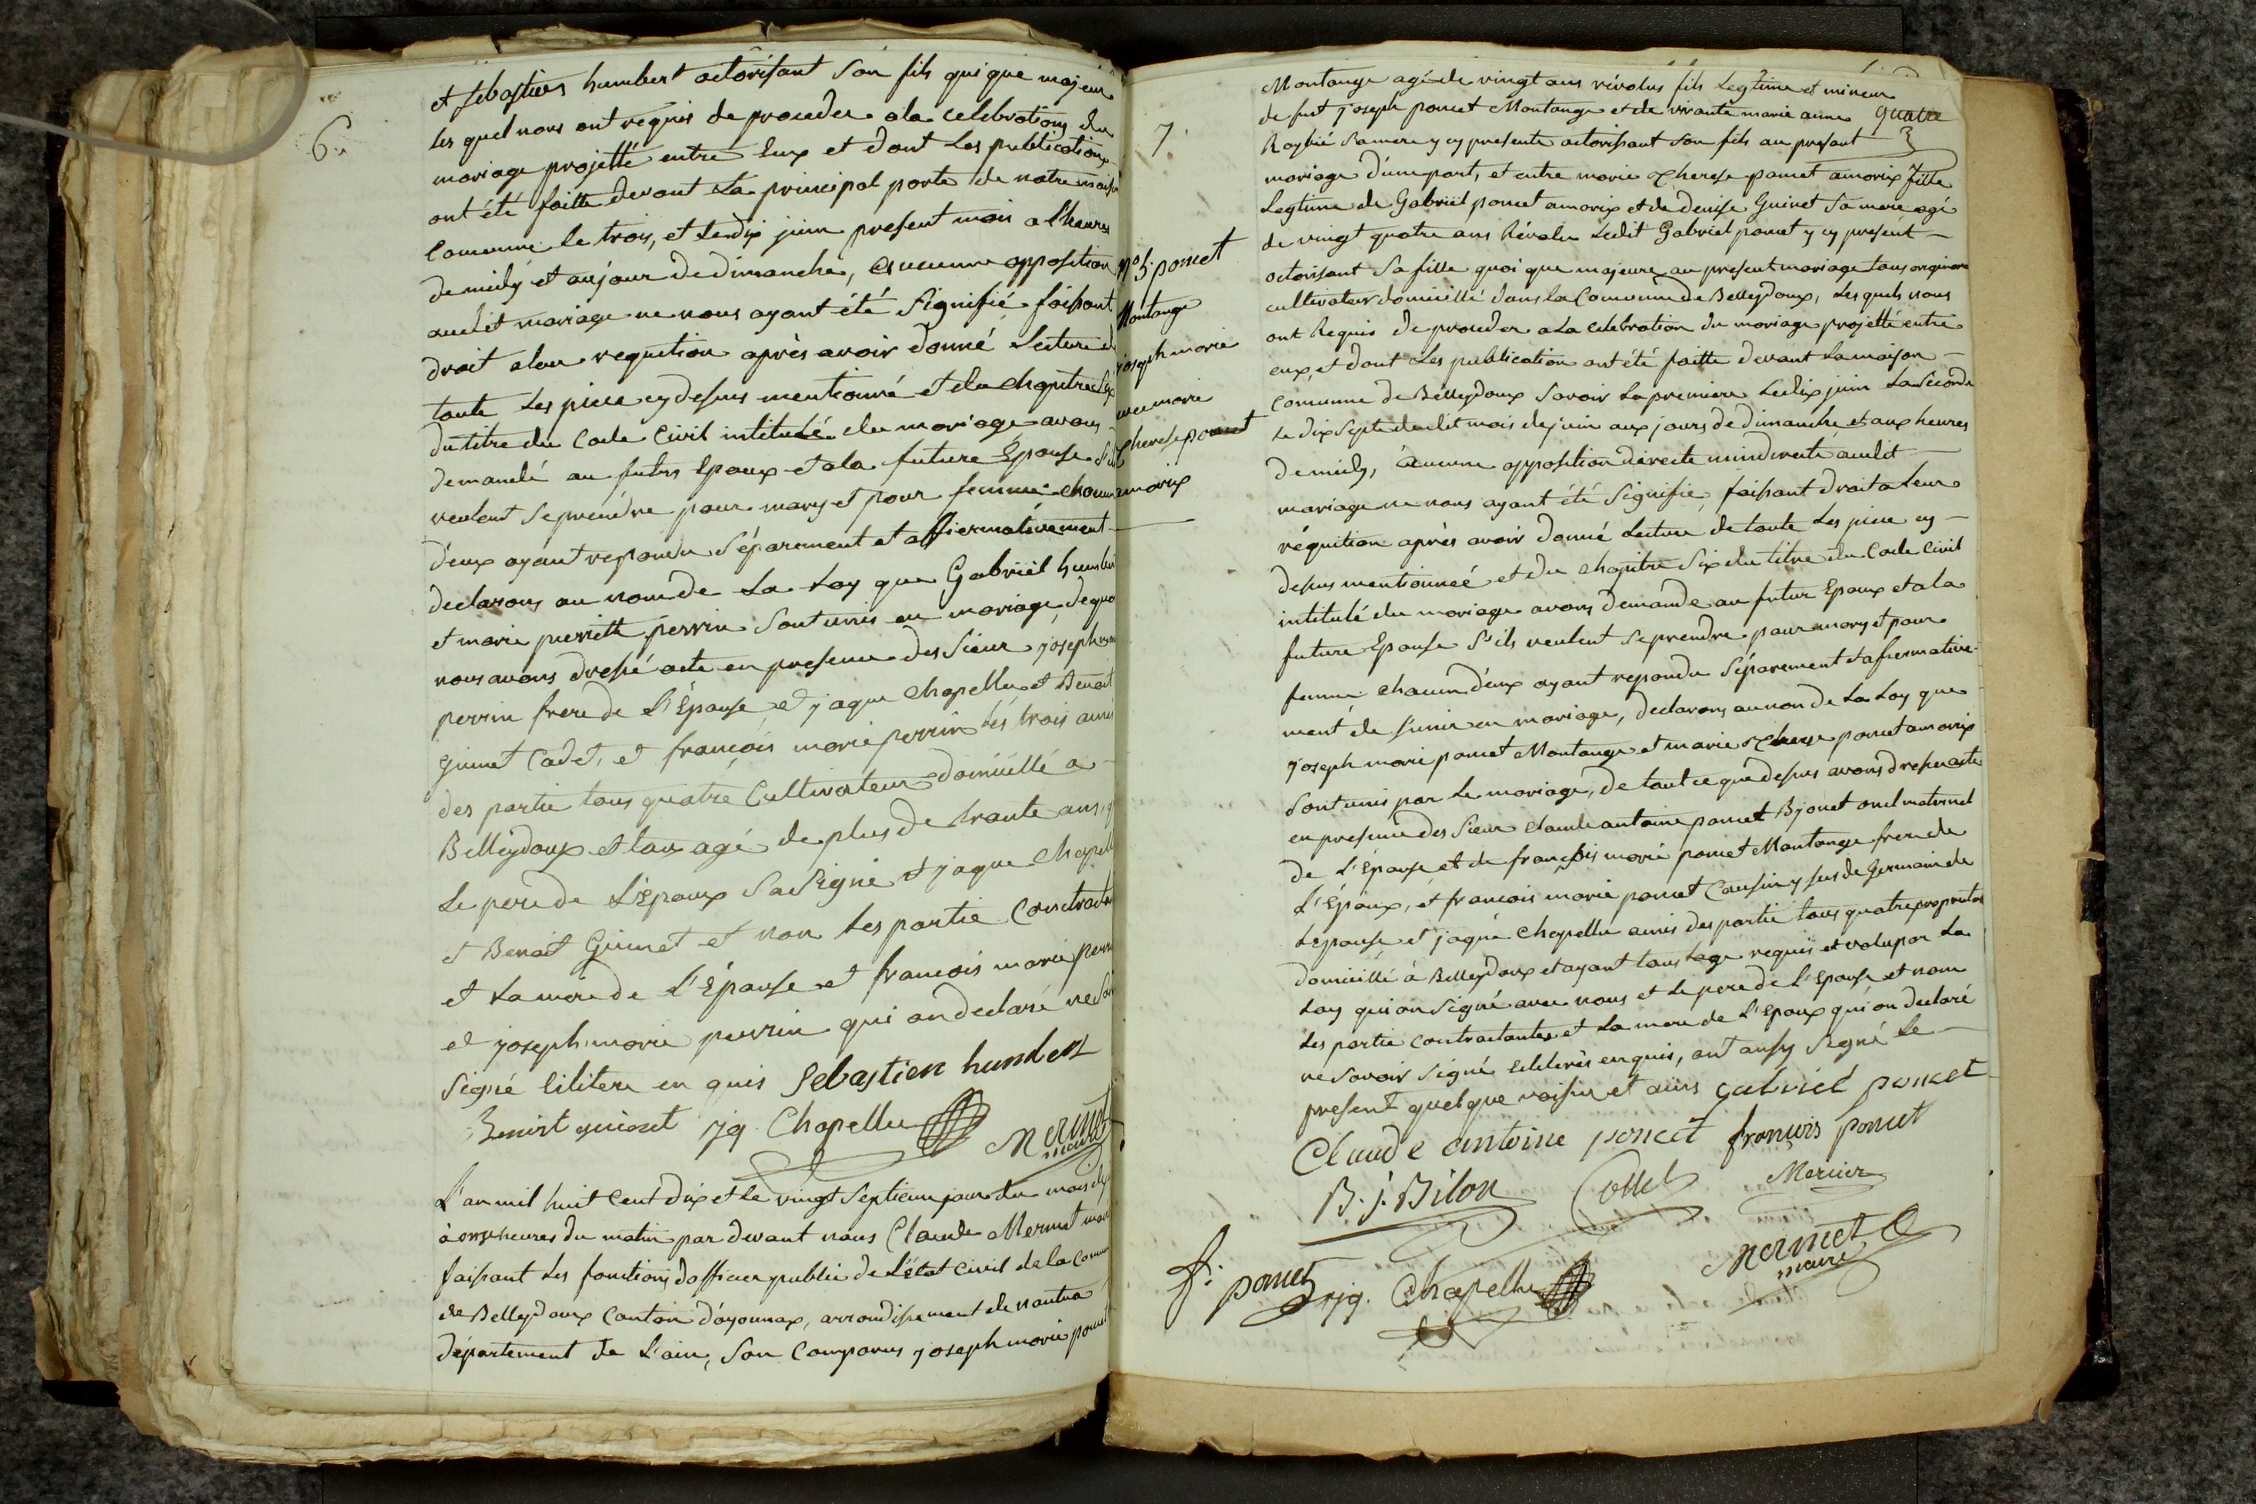 6.
et sebastien humbert actorisant son fils quique majeur
les quel nous ont requis de proceder a la celebrations du
mariage projetté entre Eux et dont les publications
ont été faitte devant la principal porte de notre maison
Comunne le trois, et le dix juin present mois a l'heures
de midy et au jour de dimanche, aucunne opposition
audit mariage ne nous ayant été signifié faisant
droit a leur requition après avoir donné Lecture de
toute les piece cy dessus mentionné et du chapitre six
du titre du Code Civil intitulé du mariage avons
demandé au futurs Epoux et a la future Épouse s'ils
veulent se prendre pour mary et pour femme chacun
d'eux ayant repondu séparement et affiermativement
declarons au nom de La Loy que Gabriël humbert
et marie pierrette perrin sont unis en mariage, de quoi
nous avons dressé acte en presence des Sieur joseph marie
perrin frere de L'Épouse et jaque Chapellu et Benoit
Guinet Cadet, et françois marie perrin les trois amis
des partie tous quatre Cultivateur domicillé a
Belleydoux et tous agé de plus de trante ans,
Le pere de L'Epoux sa signé et jaque Chapellu
et Benoit Guinet et non les partie Contractantes
et La mère de L'Épouse et françois marie perrin
et joseph marie perrin qui on declaré ne savoir
signé Elitere en quis Sebastien humbert
Benoit guinet jq. Chapellu Mermet
maire
L'an mil huit Cent dix et Le vingt septieme jour du mois de juin
à onze heures du matin par devant nous Claude Mermet maire
faisant Les fonctions d'officier public de L'état Civil de la Comune
de Belleydoux Canton d'oyonnax, arrondissement de nantua
département de L'ain, son Comparus joseph marie poncet
7.
quatre
N° 5. poncet
Montange
joseph marie
avec marie
therese poncet
amorix
Montange agé de vingt ans révolus fils Legtime et mineur
de fut joseph poncet Montange et de vivante marie anne
Raybié sa mere y cy presente actorisant son fils au present
mariage d'une part, et entre marie therese poncet amorix fille
Legtime de Gabriel poncet amorix et de denise Guinet sa mere agé
de vingt quatre ans Révolu Ledit Gabriel poncet y cy present
actorisant sa fille quoi que majeure au present mariage tous originaire
cultivateur domicillé dans la Comunne de Belleydoux, Les quels nous
ont Requis de proceder a La celebration du mariage projetté entre
eux, et dont Les publication ont été faitte devant La maison
Comunne de Belleydoux savoir La premiere Le dix juin La Seconde
Le dix Sept dudit mois de juin aux jours de dimanche et aux heures
de midy, aucunne opposition direcite nindirecte audit
mariage ne nous ayant été signifié, faisant droit a Leur
réquition après avoir donné Lecture de toute Les piece cy
dessus mentionneé et du chapitre Six du titre du Code Civil
intitulé du mariage avons demandé au futur Epoux et a la
future Epouse s'ils veulent se prendre pour mary et pour
femme chacun d'eux ayant repondu séparement et afiermative-
ment de s'unir en mariage, declarons au nom de La Loy que
joseph marie poncet Montange et marie therese poncet amorix
sont unis par Le mariage, de tout ce que dessus avons dressé acte
en presence des Sieur claude antoine poncet Bijouet oncl maternel
de L'Épouse et de françois marie poncet Montange frere de
L'Époux, et francois marie poncet Cousin yssus de Germain de
L'epouse et jaque Chapellu amis des partie tous quatre propriétaire
domicillé à Belleydoux et ayant tous Lage requis et voulu par La
Loy qui on signé avec nous et Le pere de L'Epouse et non
Les partie contractantes et La mere de L'Epoux qui on declaré
ne savoir signé Elitere enquis, ont aussy signé Le
present quelque voisin et amis gabriel poncet
Claude antoine poncet françois poncet
B. j. Bilon Collet Mercier
f. poncet jq. Chapellu Mermet
maire